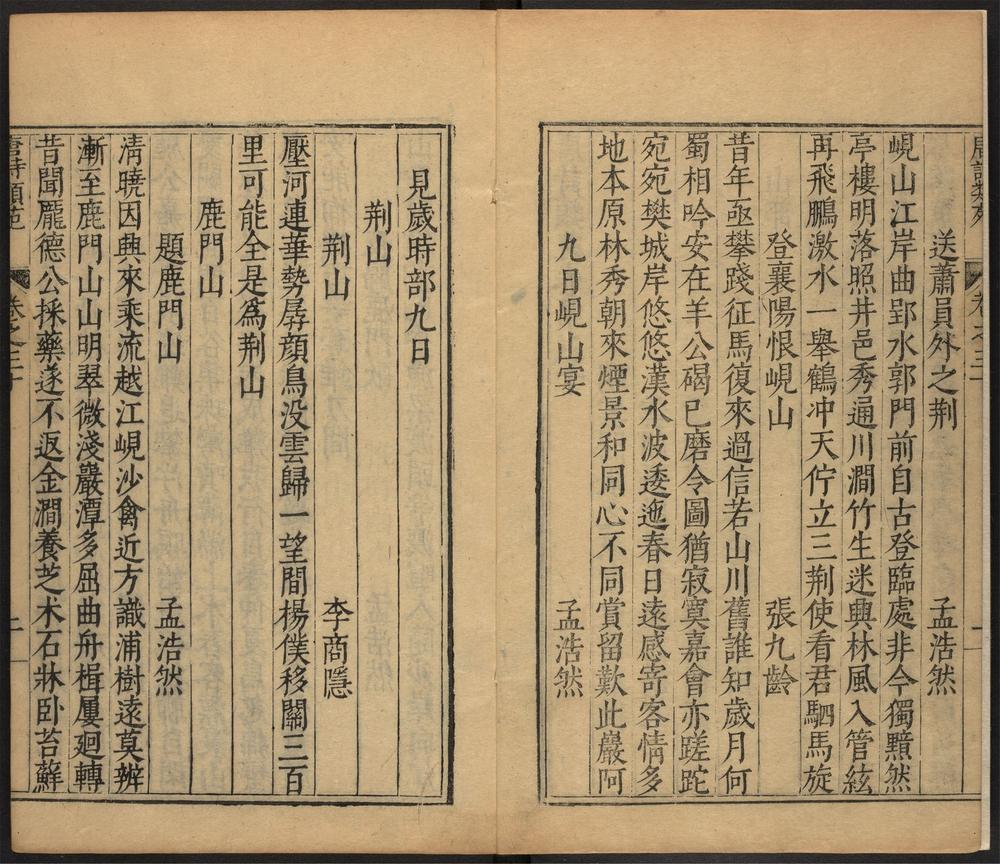 唐詩類苑 卷之三十 一
送蕭員外之荆 孟浩然
峴山江岸曲郢水郭門前自古登臨處非今獨黯然
亭樓明落照井邑秀通川澗竹生迷興林風入管絃
再飛鵬激水一舉鶴冲天佇立三荆使看君駟馬旋
登襄陽恨峴山 張九齡
昔年亟攀踐征馬復來過信若山川舊誰知歲月何
蜀相吟安在羊公碣已磨令圖猶寂寞嘉會亦蹉跎
宛宛樊城岸悠悠漢水波逶迤春日遠感寄客情多
地本原林秀朝來煙景和同心不同賞留歎此巖阿
九日峴山宴 孟浩然
見歲時部九日
荆山
荆山 李商隱
壓河連華勢孱顔鳥没雲歸一望間楊僕移關三百
里可能全是爲荆山
鹿門山
題鹿門山 孟浩然
清曉因興來乘流越江峴沙禽近方識浦樹遠莫辨
漸至鹿門山山明翠微淺巖潭多屈曲舟楫屢廻轉
昔聞龎德公採藥遂不返金澗養芝术石牀卧苔蘚
唐詩類苑 卷之三十 二